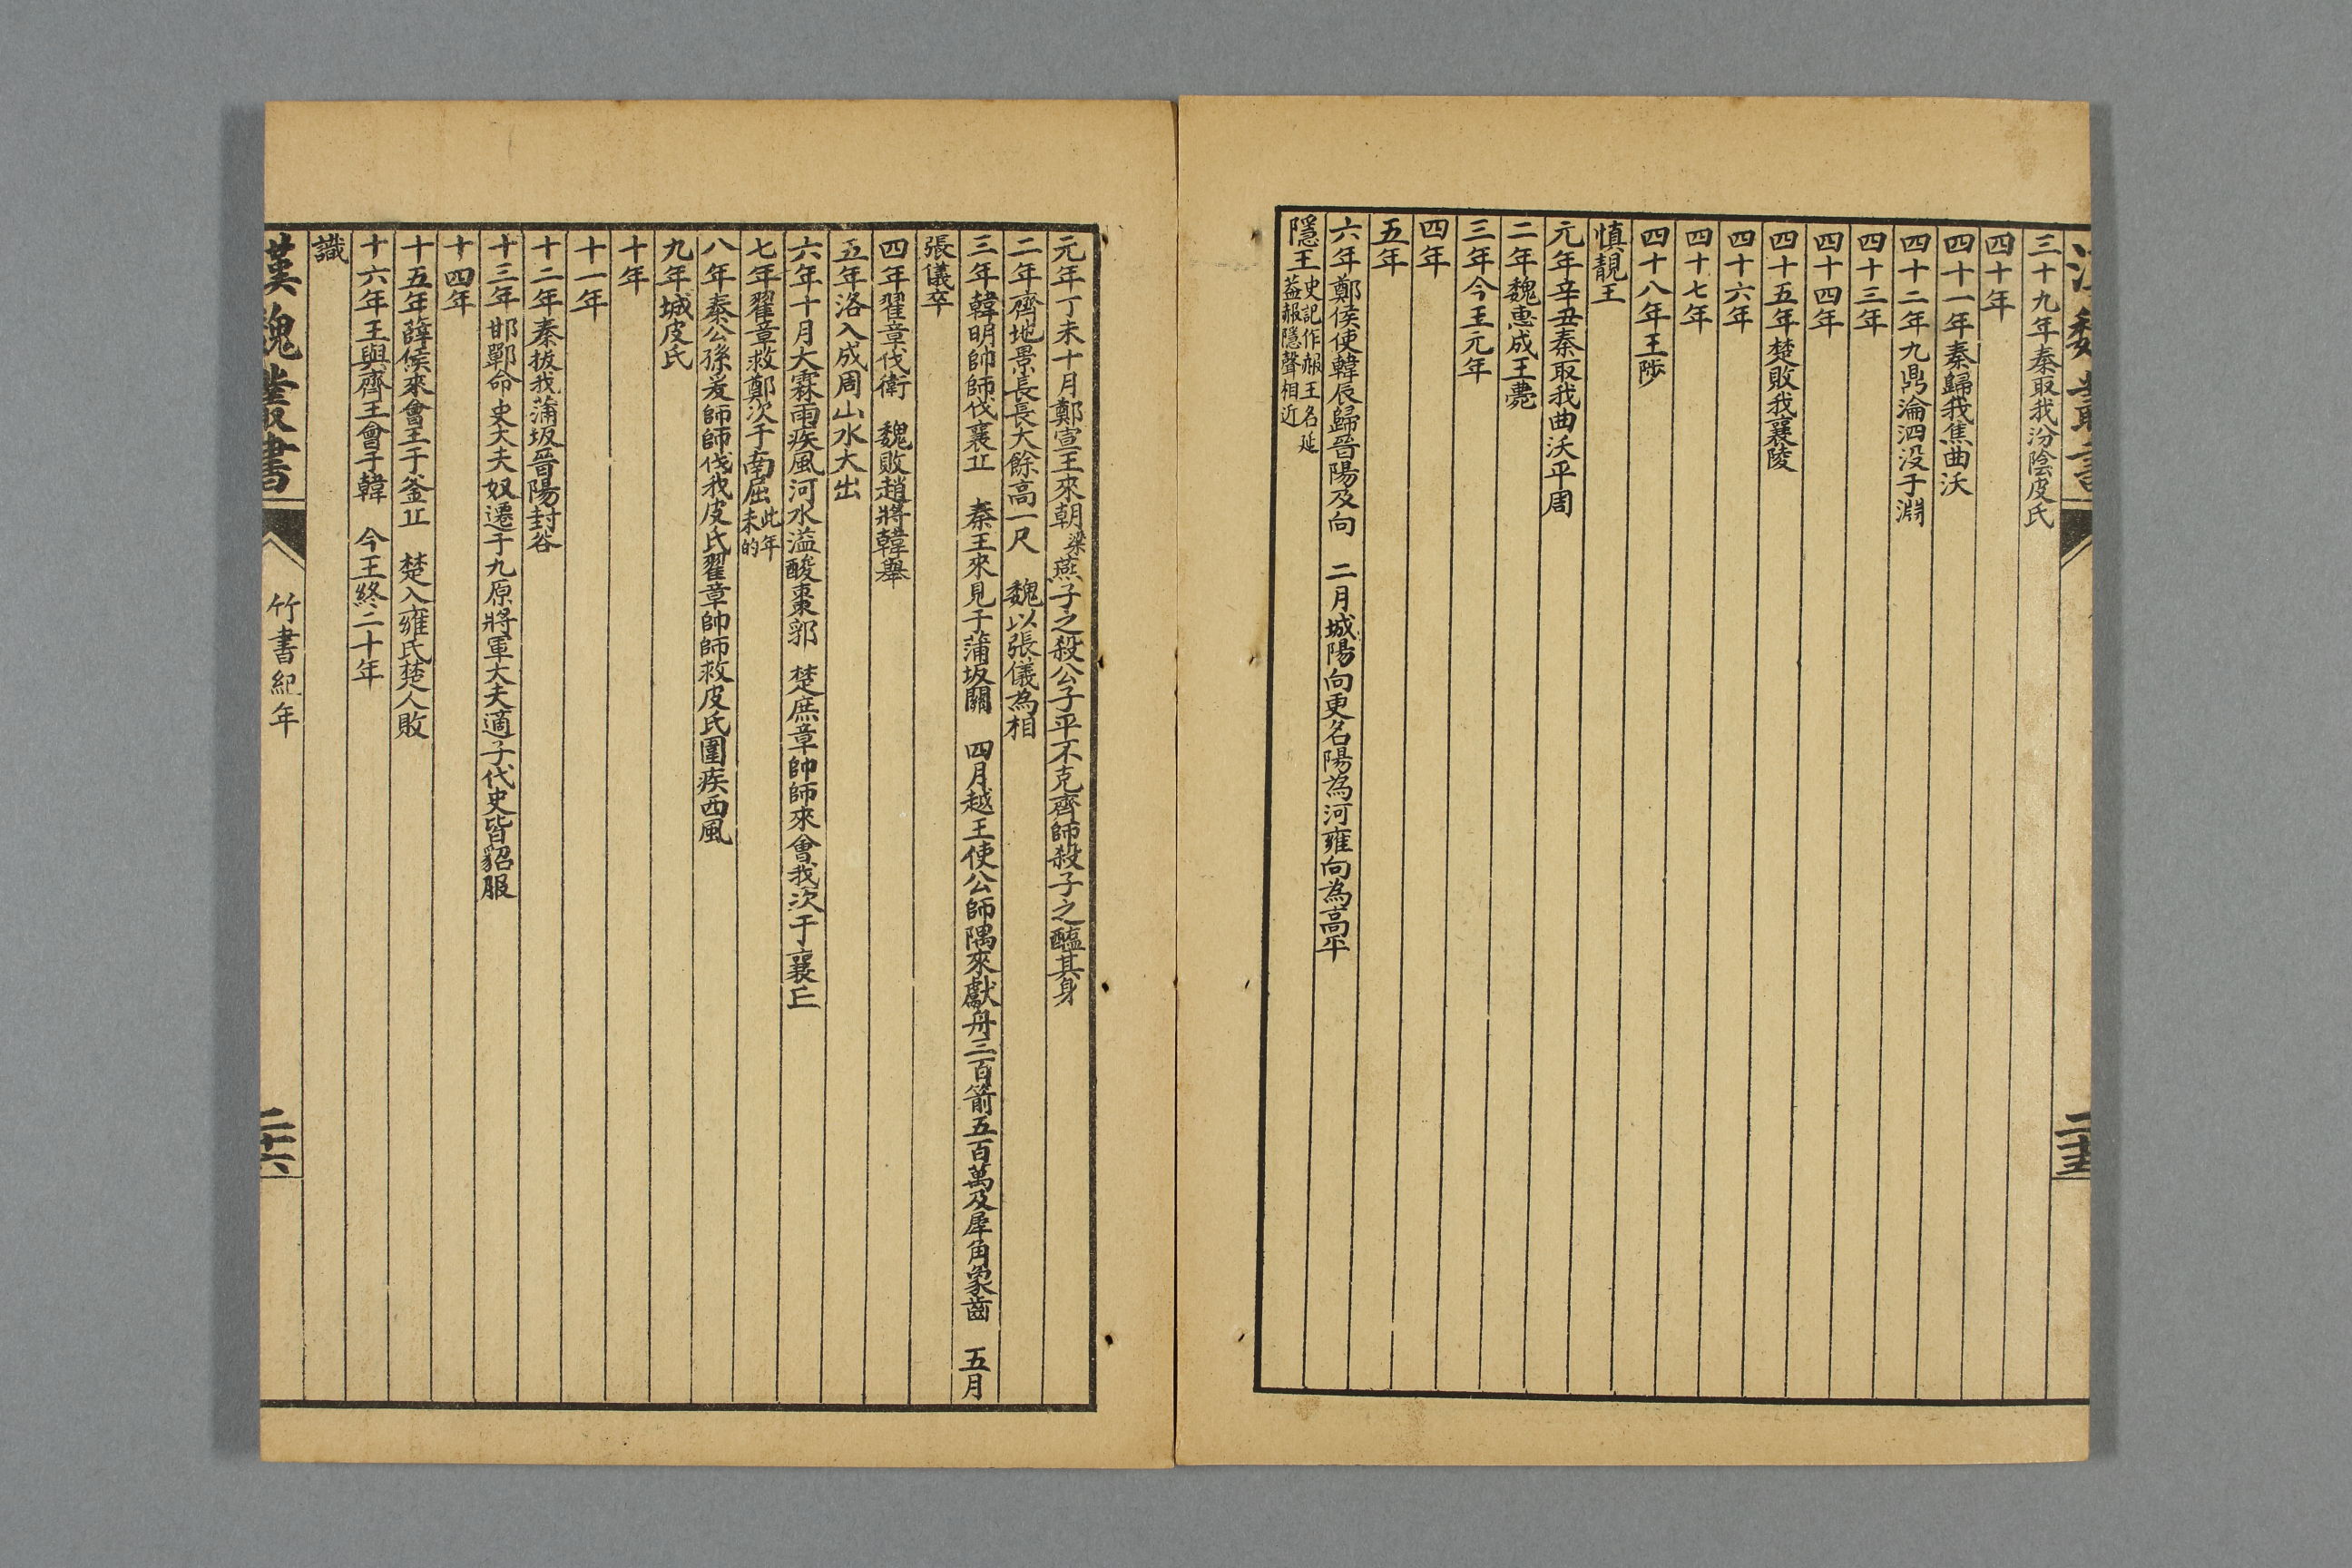 漢魏叢書
二十五
三十九年秦取我汾陰皮氏
四十年
四十一年秦歸我焦曲沃
四十二年九鼎淪泗没于淵
四十三年
四十四年
四十五年楚敗我襄陵
四十六年
四十七年
四十八年王陟
慎靚王
元年辛丑秦取我曲沃平周
二年魏惠成王薨
三年今王元年
四年
五年
六年鄭侯使韓辰歸晉陽及向　二月城陽向更名陽為河雍向為高平
隱王史記作赧王名延
葢赧隱聲相近
元年丁未十月鄭宣王來朝梁燕子之殺公子平不克齊師殺子之醢其身
二年齊地景長長大餘高一尺　魏以張儀為相
三年韓明帥師伐襄丘　秦王來見于蒲坂關　四月越王使公師隅來獻舟三百箭五百萬及犀角象齒　五月
張儀卒
四年翟章伐衛　魏敗趙將韓舉
五年洛入成周山水大出
六年十月大霖雨疾風河水溢酸棗郛　楚庶章帥師來會我次于襄丘
七年翟章救鄭次于南屈此年
未的
八年秦公孫爰師師伐我皮氏翟章帥師救皮氏圍疾西風
九年城皮氏
十年
十一年
十二年秦拔我蒲坂晉陽封谷
十三年邯鄲命吏大夫奴遷于九原將軍大夫適子代史皆貂服
十四年
十五年薛侯來會王于釜丘　楚入雍氏楚人敗
十六年王與齊王會于韓　今王終二十年
識
漢魏叢書
竹書紀年
二十六